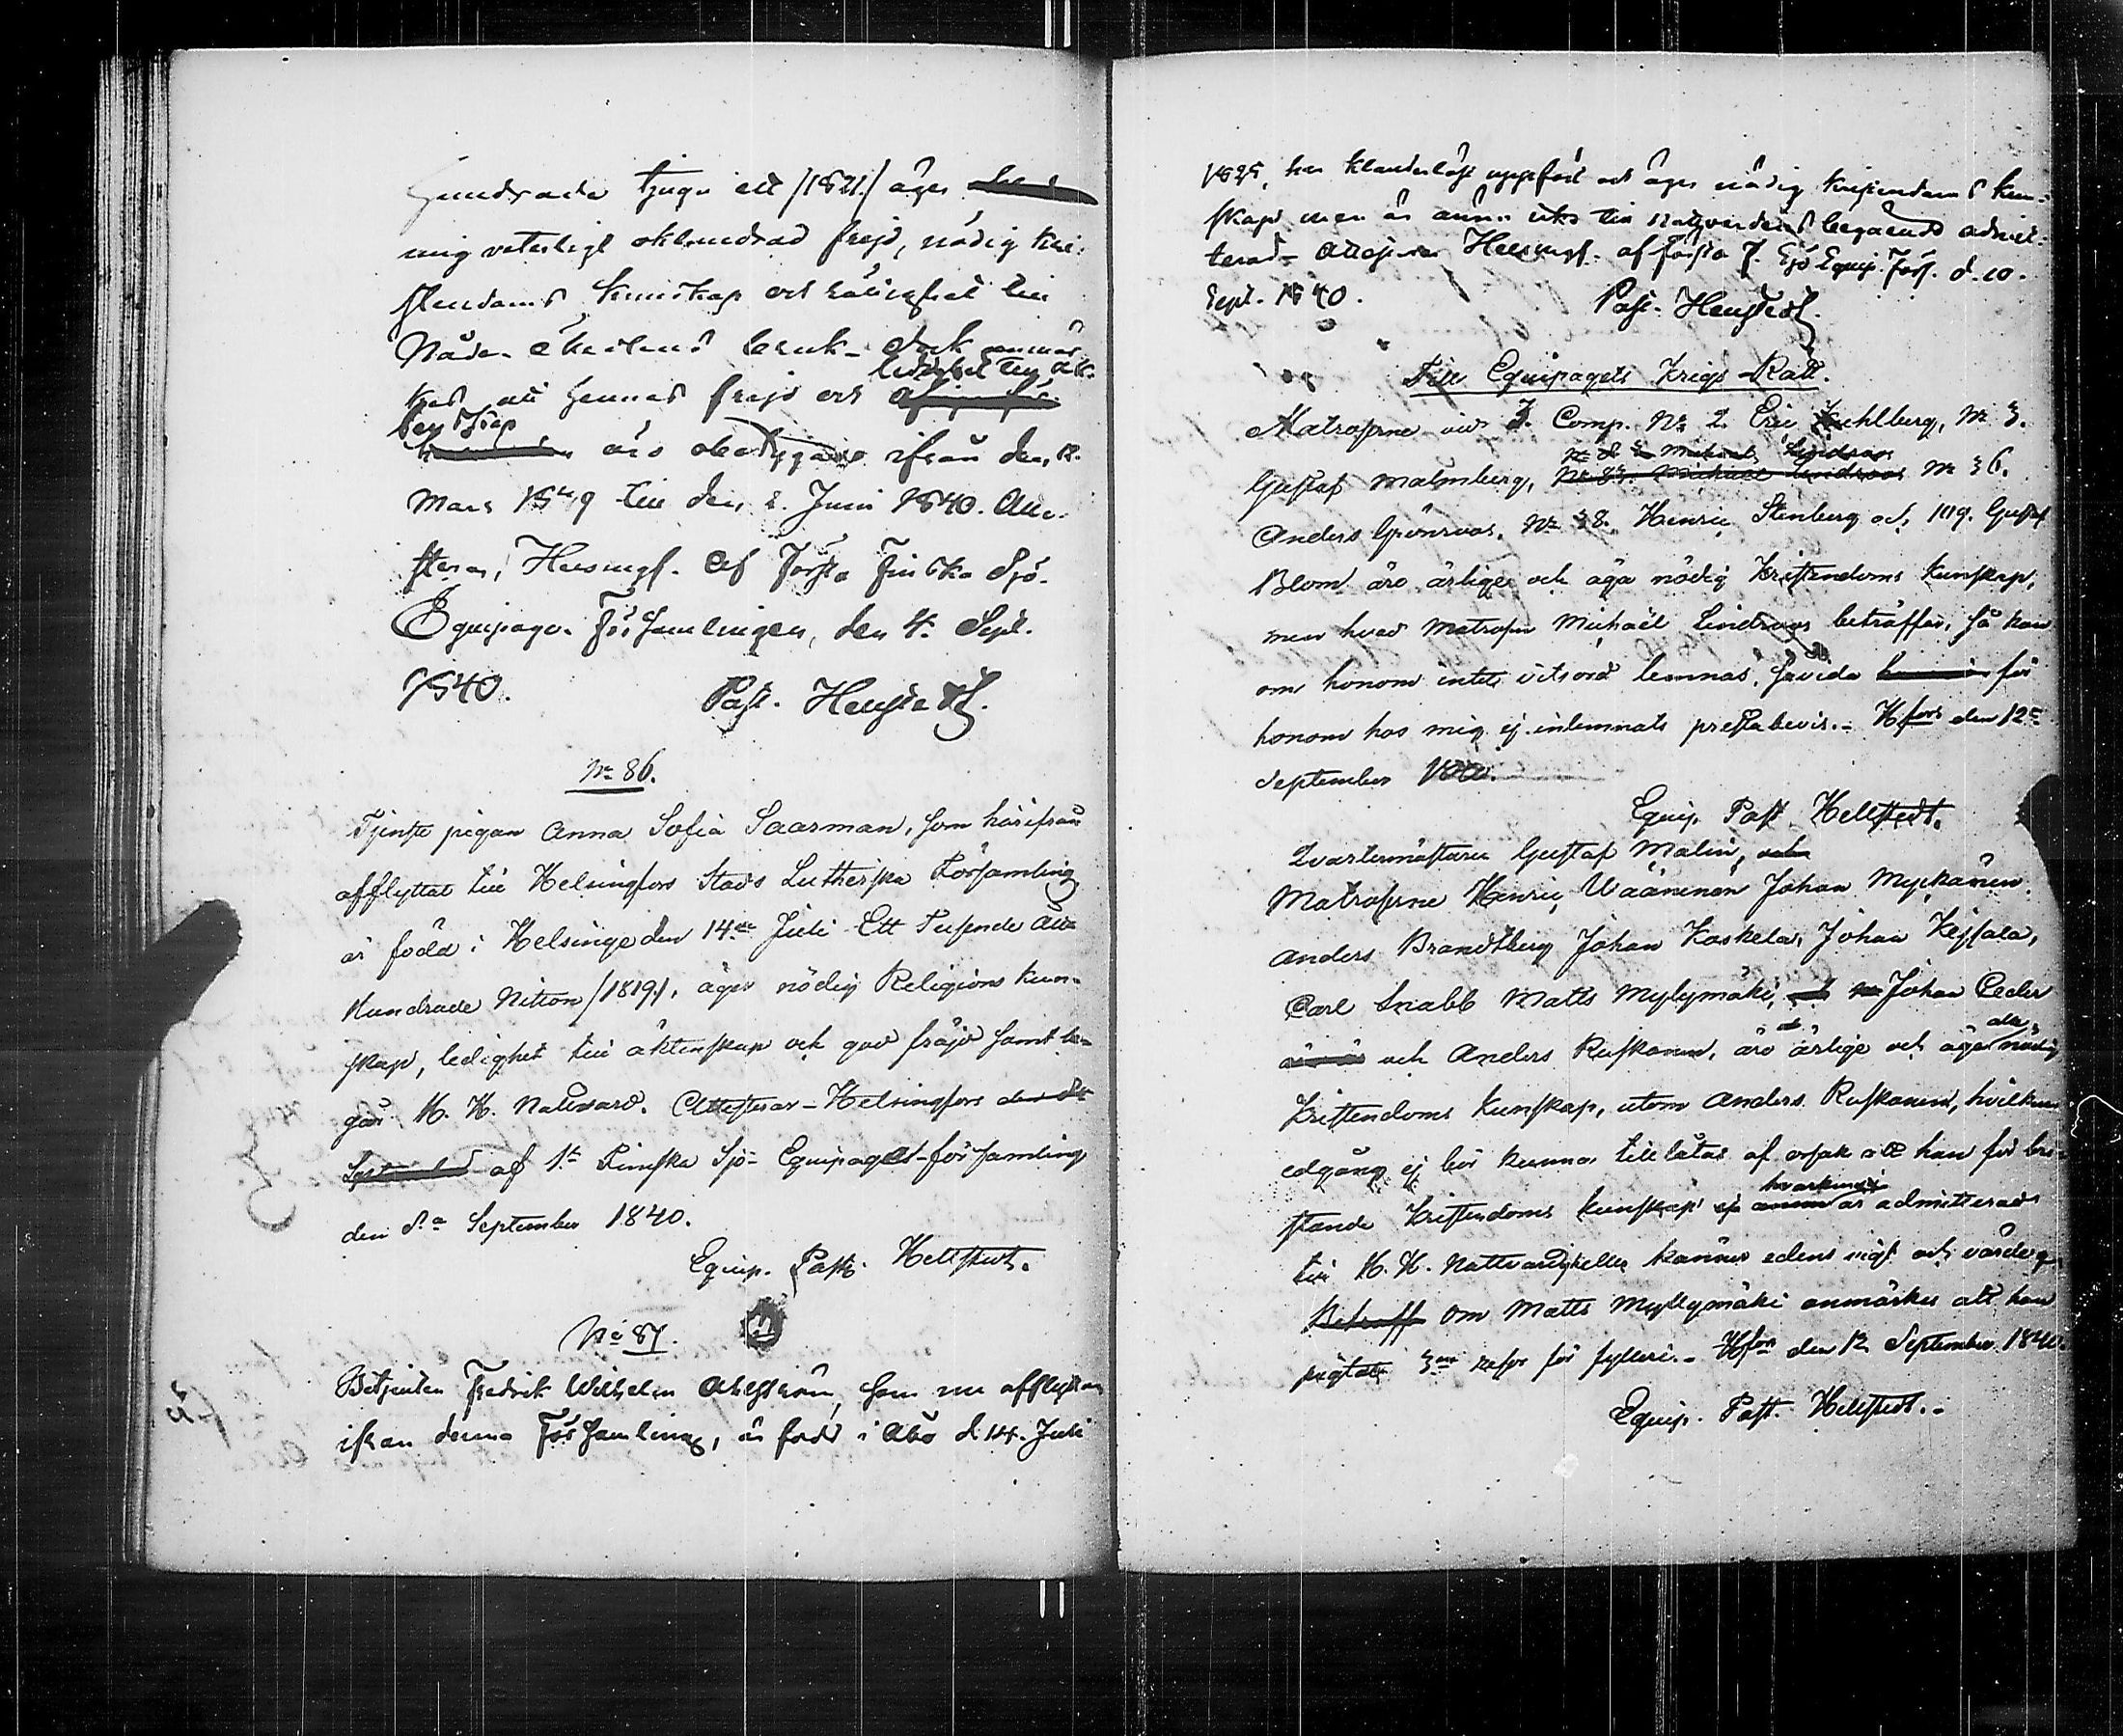 Hundrade tjugu ett /1821./ äger
mig veterligt oklandrad frejd, nödig Kri-
stendoms kunskap och rättighet till
Nåde-Medlens bruk. dock anmär-
ledighet till äk-
kes att hennes frejd och
tenskap
äro obetygade ifrån den 12.
Mars 1839 till den 2. Juni 1840. Atte-
steras, Helsingf. af Första Finska Sjö-
Equipage-Församlingen, den 4. Sept.
1840. Past. Hellstedt.
No 86.
Tjenste pigan Anna Sofia Saarman, som härifrån
afflyttat till Helsingfors Stads Lutherska Församling
är född i Helsinge den 14de Juli Ett Tusende Atta
Hundrade Nitton /1819/, äger nödig Religions kun-
skap, ledighet till äktenskap och god fräjd samt be-
går H. H. Nattvard. Attesteras - Helsingfors den 8de
September af 1sta Finska Sjö-Equipagets-församling
den 8.a September 1840.
Equip. Past. Hellstedt.
No 87.
Betjenten Fredrik Wilhelm Ahlström, som nu afflyttar
ifrån denna Församling, är född i Åbo d. 14. Juli
1825, har klanderlöst uppfört och äger nödig Kristendoms kun-
skap, men är ännu icke till nattvardens begående admit-
terad. Attesteras Helsingf. af första F. Sjö Equip. Förs. d. 10.
Sept. 1840. Past. Hellstedt.
Till Equipagets Krigs-Rätt.
Matroserne vid 3. Comp. No 2. Eric Kuhlberg, No 3.
No 83 Michael Lindroos
Gustaf Malmberg, No 83. Michael Lindroos No 36.
Anders Grönroos, No 38. Henric Stenberg och 109. Gustaf
Blom äro ärlige och äga nödig Kristendoms kunskap,
men hvad Matrosen Michaël Lindroos beträffar, så kan
om honom intet vitsord lemnas, såvida för
honom hos mig ej inlemnats prestabevis. - Hfors den 12te
September 1840.
Equip. Past. Hellstedt.
Qvartermästaren Gustaf Malin, och
Matroserne Henric Wäänänen Johan Myckänen
Anders Brandtberg Johan Koskela, Johan Keijsala,
Carl Snabb Matts Myllymäki, Johan Ceder
och Anders Ruskanen, äro ärlige och äga nödig
Kristendoms kunskap, utom Anders Ruskanen, hvilken
edgång ej bör kunna tillåtas af orsak att han för bri-
hvarken
stande Kristendoms kunskap ej ännu är admitterad
till H. H. Nattvard heller känner edens vigt och värde
Beträff om Matts Myllymäki anmärkes att han
pligtat 3ne resor för fylleri. - Hfors den 12 September 1840.
Equip. Past. Hellstedt.